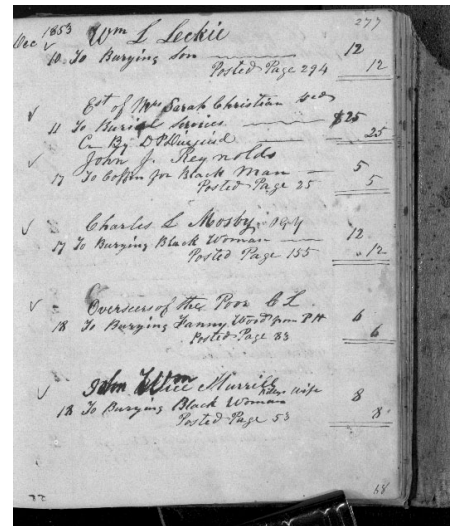 277
Dec 1853 Wm L Leckie
10 To Burying Son 12
Posted Page 294 12
Est of Mrs Sarah Christian Decd
11 To Burial Services $25
Cr By D P 25
John J. Reynolds
17 To Coffin for Black Man 5
Posted Page 25 5
Charles L Mosby
17 To Burying Black Woman 12
Posted Page 155 12
Overseers of the Poor C L
18 To Burying Fanny Wood from P H 6
Posted Page 83 6
Murrill
18 To Burying Black Woman wife 8
Posted Page 53 8